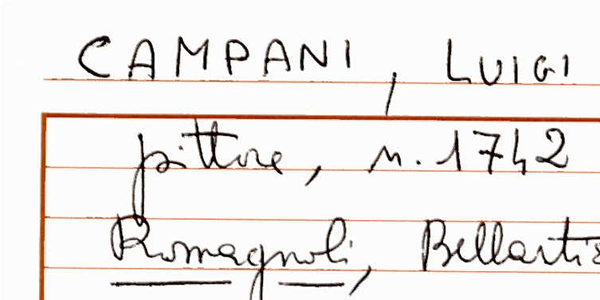 CAMPANI, LUIGI
pittore, n. 1742
Romagnoli, Bellartis